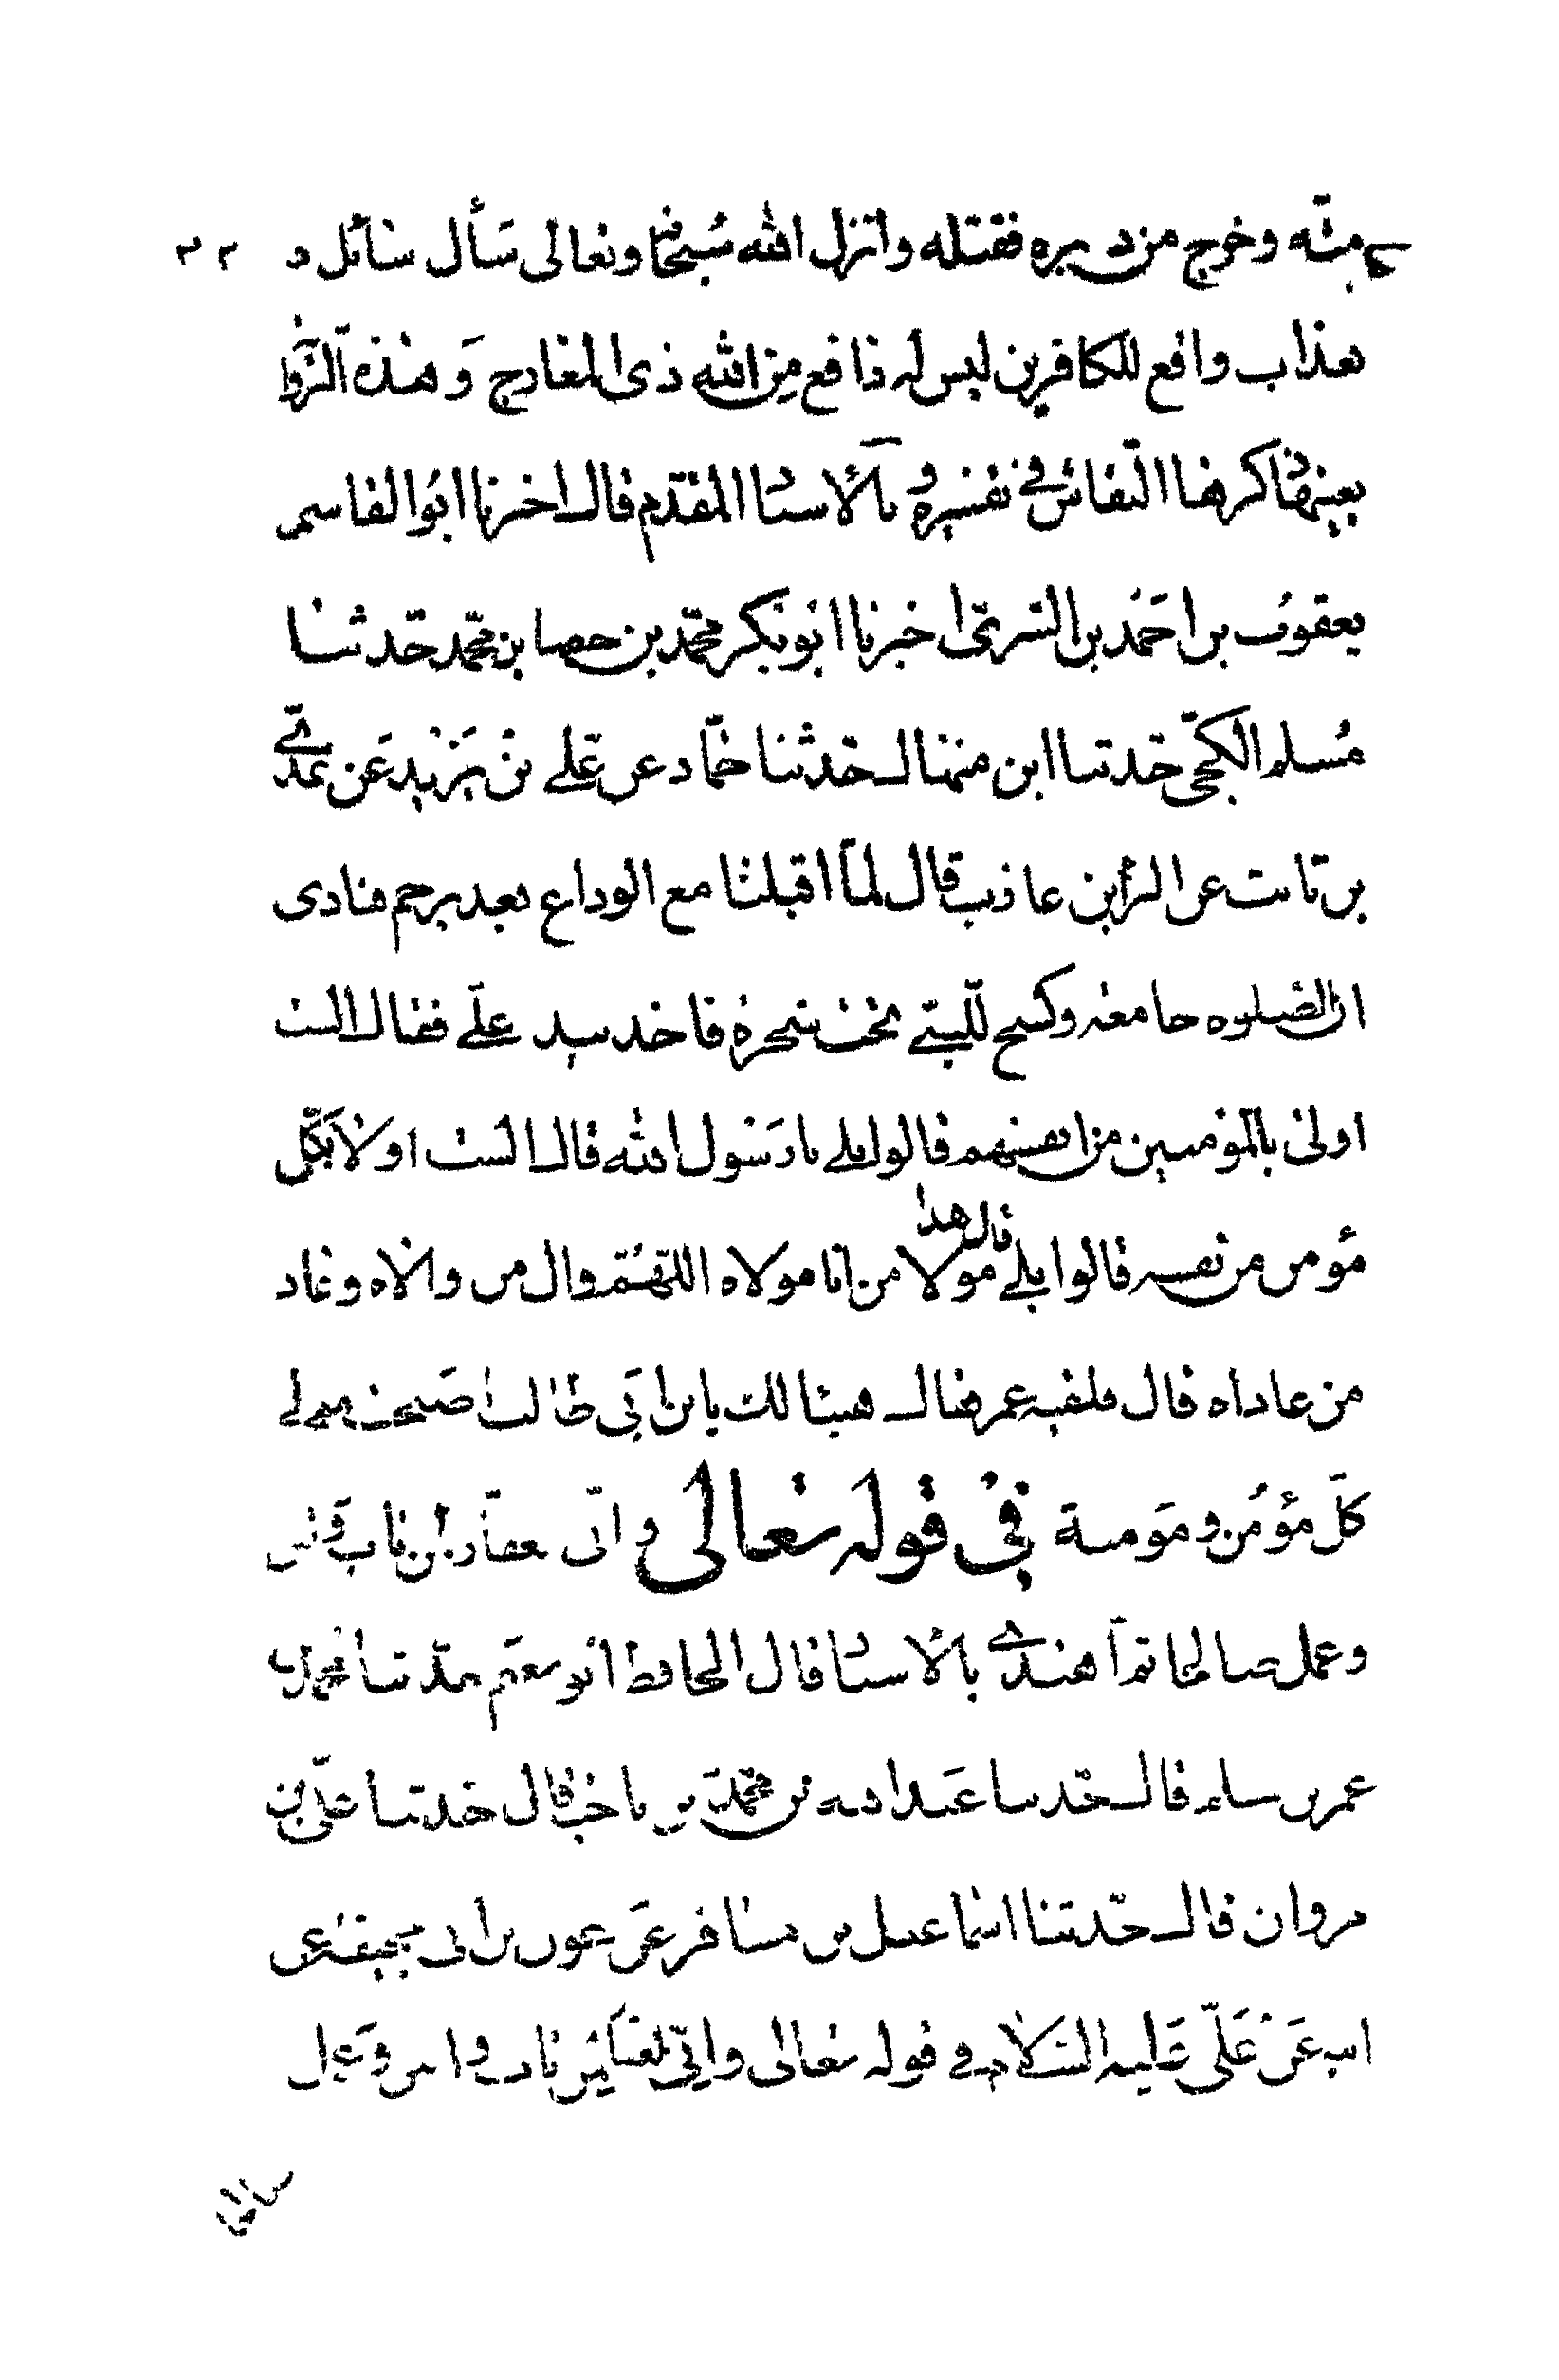 في مته وخرج من دبره فقتله وانزل الله سبحانه وتعالى سأل سائل د ٢٢
بعذاب واقع للكافرين ليس له دافع من الله ذى المعارج وهذه الروا
بعينها ذكرها النقاش في تفسيره و بالاسناد المقدم قال اخبرنا ابوالقاسم
يعقوب بن احمد بن السرى اخبرنا ابوبكر محمد بن بن محمد حدثنا
مسلم الكجى حدثنا ابن منهال حدثنا حماد عن على بن يزيد عن عدى
بن ثابت عن البرأ بن عاذب قال لما اقبلنا مع الوداع بغدير خم فنادى
ان الصلوه جامعه وكسح للنبي تحت شجرة فاخذ بيد على فقال الست
اولى بالمؤمنين من انفسهم قالوا بلى يا رسول الله قال الست اولا بكل
مؤمن من نفسه قالوا بلى قال هذا مولا من انا مولاه اللهم وال من والاه وعاد
من عاداه قال فلقيه عمر فقال هنيئا لك يا بن ابى طالب اصبحت مولى
كل مؤمن ومؤمنة في قوله تعالى وانى لغفار لمن تاب وامن
وعمل صالحا ثم اهتدى بالاسناد قال الحافظ ابو نعيم حدثنا محمد بن
عمر بن سالم قال حدثنا عبدالله بن محمد بن ناجيه قال حدثنا على بن
مروان قال حدثنا اسماعيل بن مسافر عن عون بن ابى جحيفة عن
ابيه عن على عليه السلام في قوله تعالى وانى لغفار لمن تاب وامن وعمل
صالحا